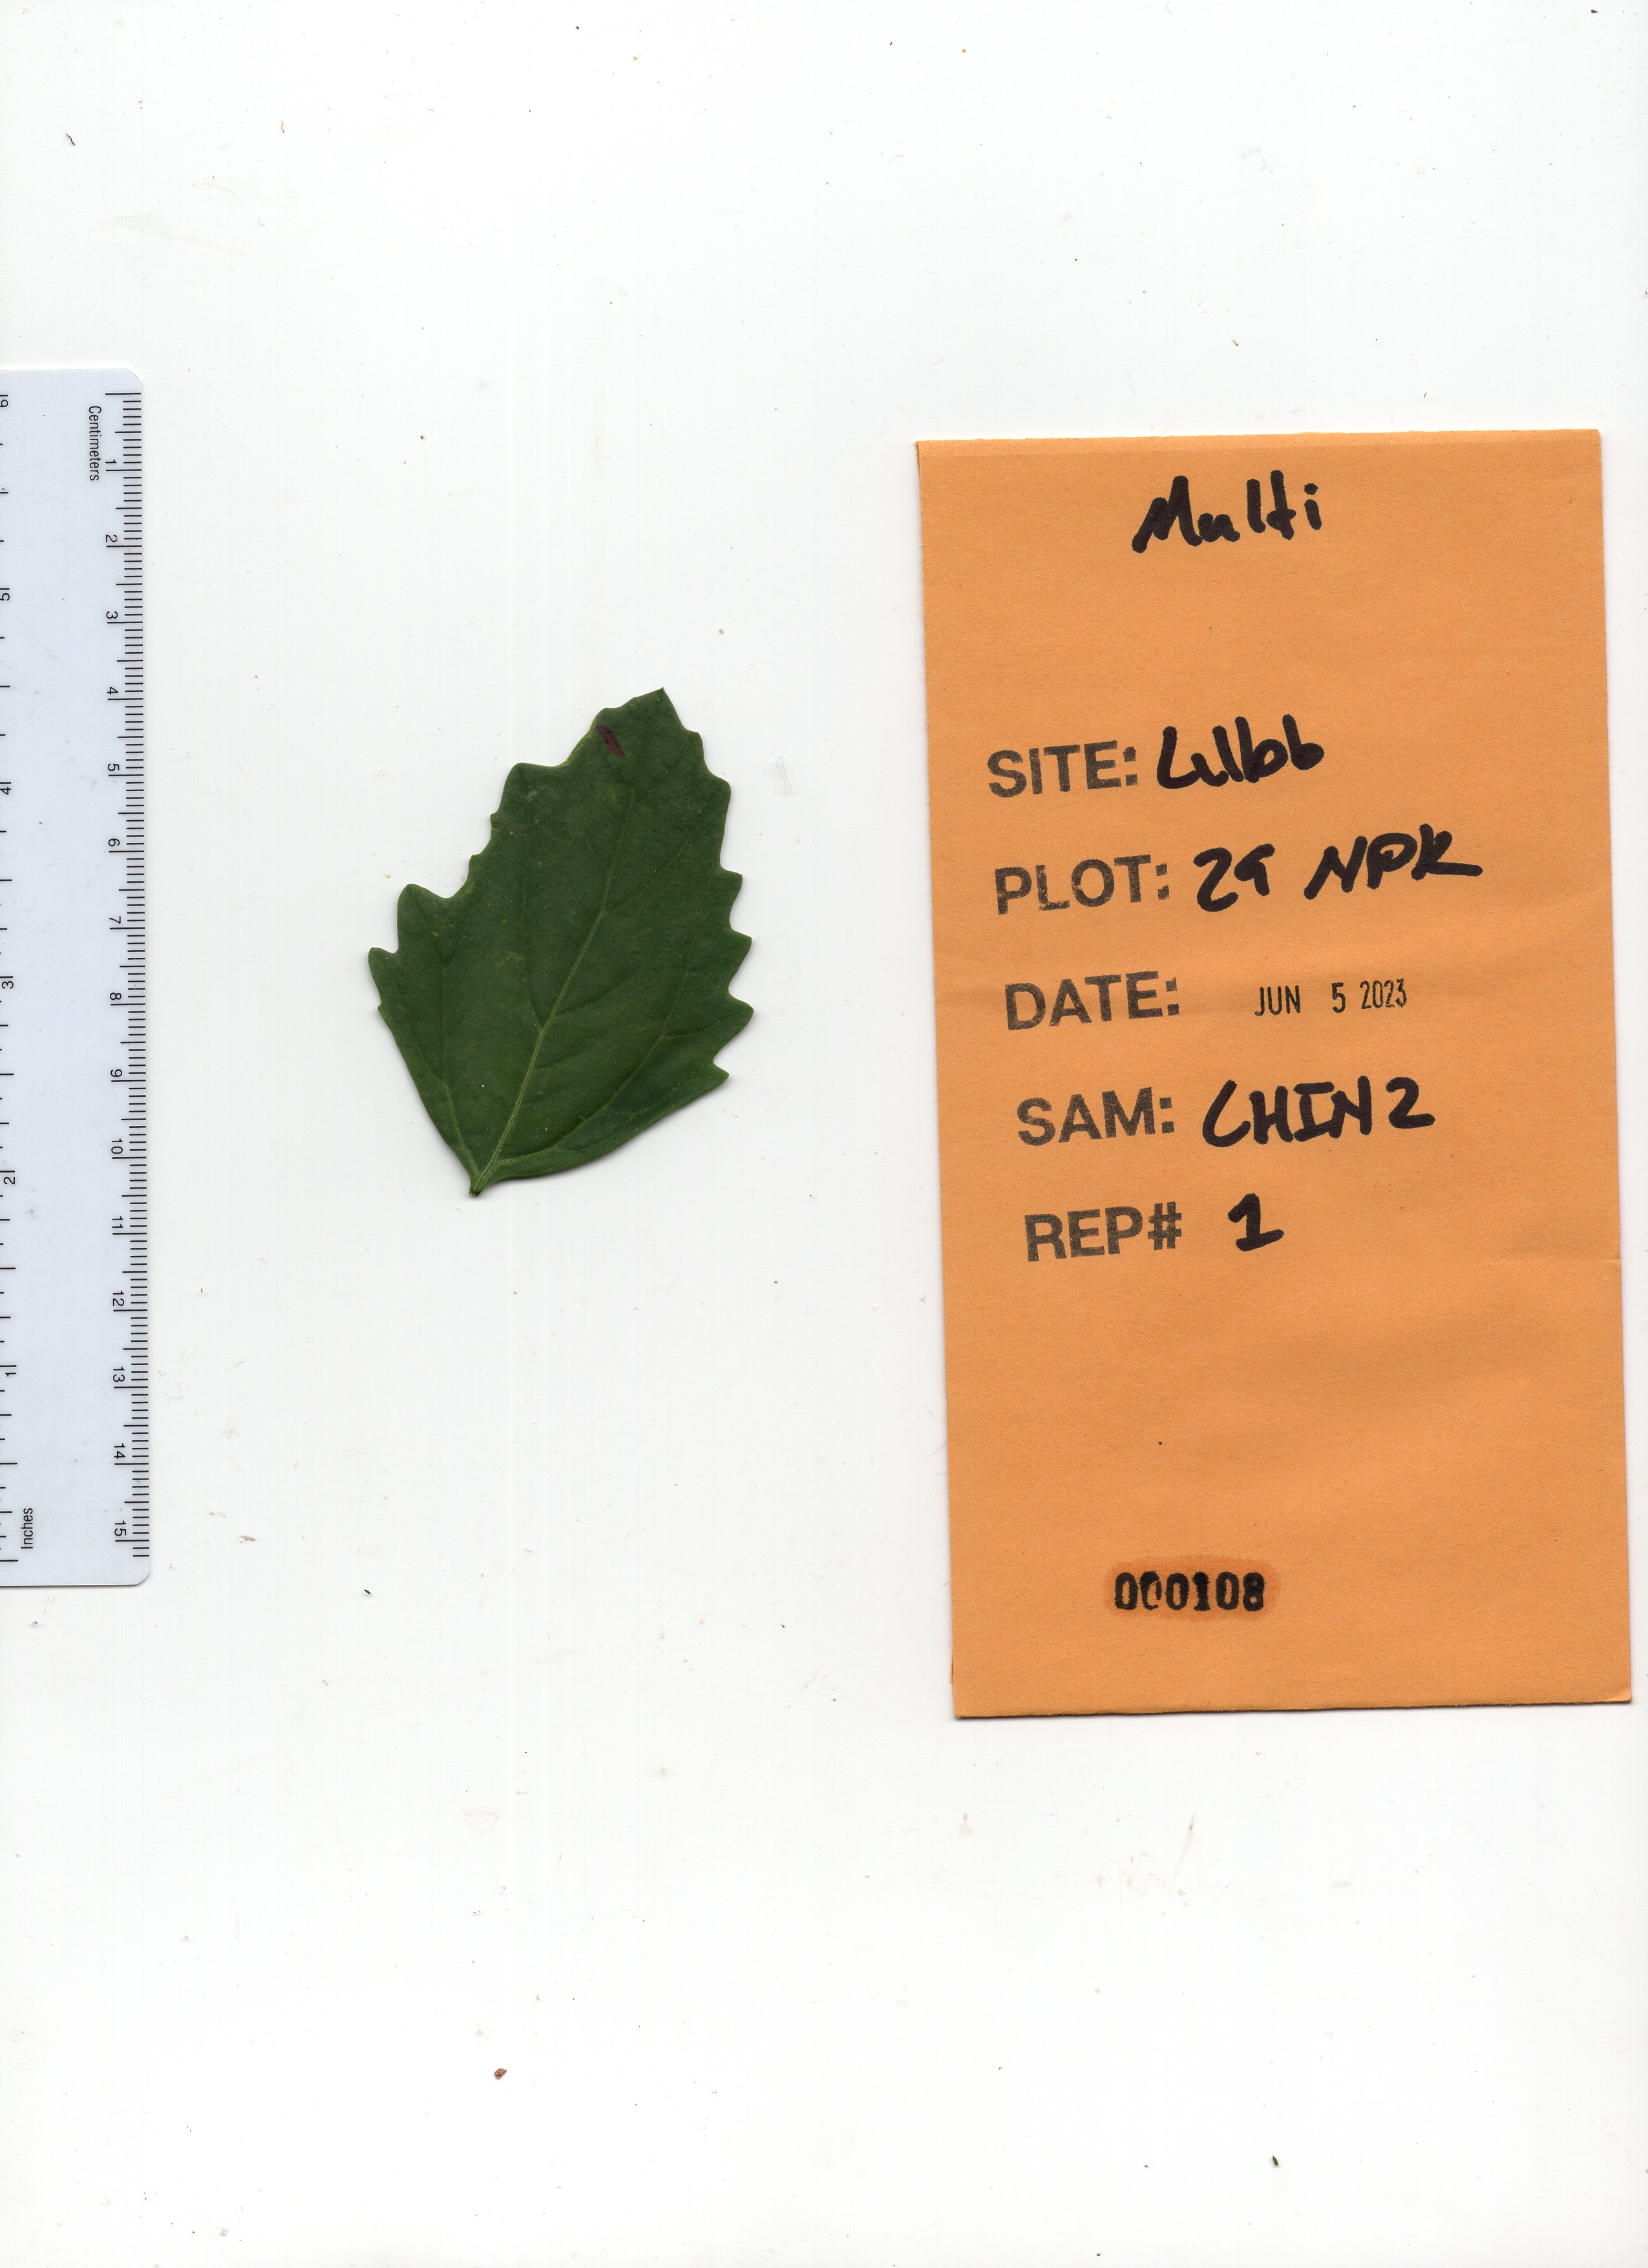 Centimeters
1
2
3
4
5
6
7
8
9
10
11
12
13
14
15
6
5
4
3
2
1
Inches
Multi
SITE: Lubb
PLOT: 29 NPK
DATE: JUN 5 2023
SAM: CHIN2
REP# 1
000108